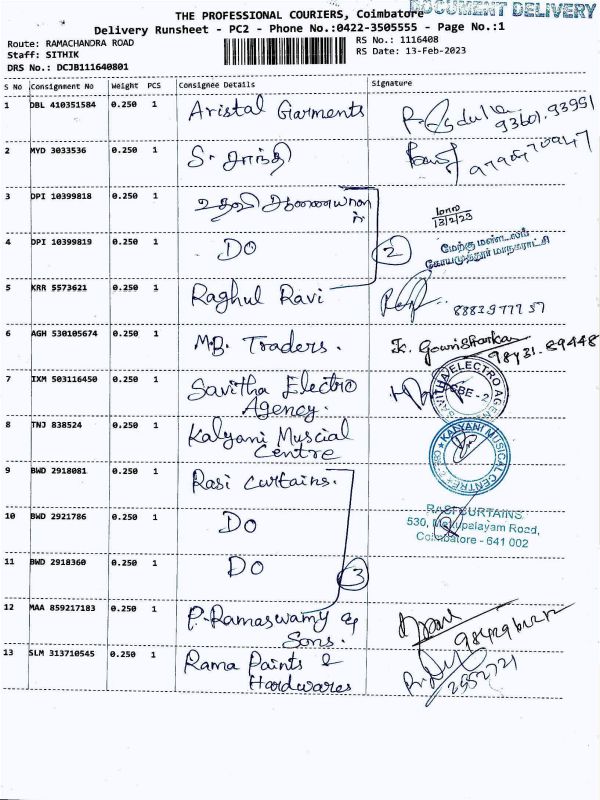 DOCUMENT DELIVERY
THE PROFESSIONAL COURIERS, Coimbatore
Delivery Runsheet - PC2 - Phone No.:0422-3505555 - Page No.:1
Route: RAMACHANDRA ROAD RS No.: 1116408
Staff: SITHIK RS Date: 13-Feb-2023
DRS No.: DCJB111640801
S No Consignment No Weight PCS Consignee Details Signature
1 DBL 410351584 0.250 1 Aristal Garments
93601.93991
2 MYD 3033536 0.250 1 S. சாந்தி
3 DPI 10399818 0.250 1 உதவி ஆணையாளர்
மாலை
13/2/23
4 DPI 10399819 0.250 1 DO 2 மேற்கு மண்டலம்
கோயமுத்தூர் மாநகராட்சி
5 KRR 5573621 0.250 1 Raghul Ravi
6 AGH 530105674 0.250 1 M.B. Traders. K. Gowrishankar
98431.89448
7 IXM 503116450 0.250 1 Savitha Electro
Agency.
SAVITHA ELECTRO AGENCY
CBE - 2
8 TNJ 838524 0.250 1 Kalyani Muscial
Centre
KALYANI MUSICAL CENTRE
9 BWD 2918081 0.250 1 Rasi Curtains.
10 BWD 2921786 0.250 1 DO RASI CURTAINS
530, Mettupalayam Road,
Coimbatore - 641 002
11 BWD 2918360 0.250 1 DO 3
12 MAA 859217183 0.250 1 P. Ramaswamy &
Sons.
13 SLM 313710545 0.250 1 Rama Paints &
Hardwares
2552721